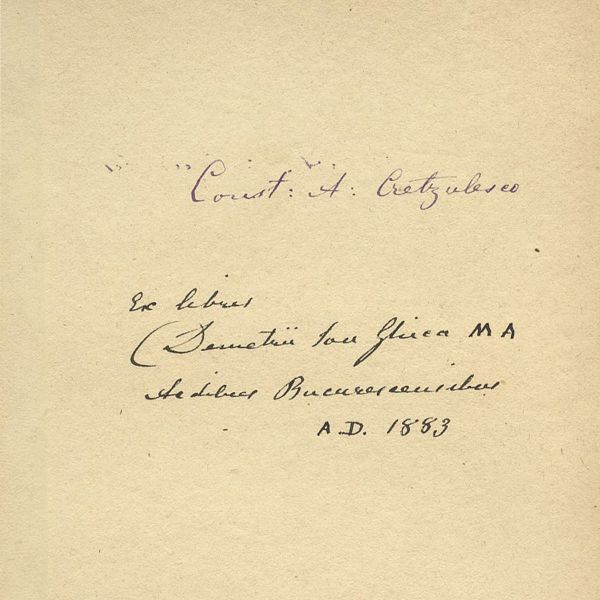 Const: A: Cretzulesco
Ex libris
Demetrii Ion Ghica MA
Aedibus Bucurescensibus
A.D. 1883